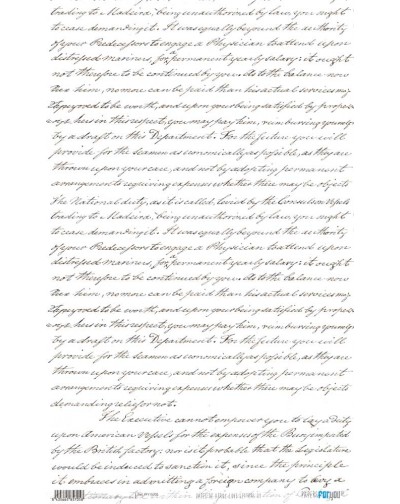 trading to Madeira, being unauthorized by law, you ought
to cease demanding it. It was equally beyond the authority
of your Predecessor to engage a Physician to attend upon
distressed mariners, for a permanent yearly salary; it ought
not therefore to be continued by you. As to the balance now
due him, no more can be paid than his actual services may
be worth, and upon your being satisfied by
in this respect, you may pay him, reimbursing yourself
by a draft on this Department. For the future you will
provide for the seamen as economically as possible, as they are
thrown upon your care, and not by adopting permanent
arrangements creating expenses whether there may be objects
The National duty, as it is called, levied by the Consul on Vessels
trading to Madeira, being unauthorized by law, you ought
to cease demanding it. It was equally beyond the authority
of your Predecessor to engage a Physician to attend upon
distressed mariners, for a permanent yearly salary; it ought
not therefore to be continued by you. As to the balance now
due him, no more can be paid than his actual services may
be worth, and upon your being satisfied by
in this respect, you may pay him, reimbursing yourself
by a draft on this Department. For the future you will
provide for the seamen as economically as possible, as they are
thrown upon your care, and not by adopting permanent
arrangements creating expenses whether there may be objects
demanding relief or not.
The Executive cannot empower you to lay a Duty
upon American Vessels for the expenses of the Burying
by the British factory: nor is it probable that the Legislature
would be induced to sanction it, since the principle
it embraces in admitting a foreign company to lay a